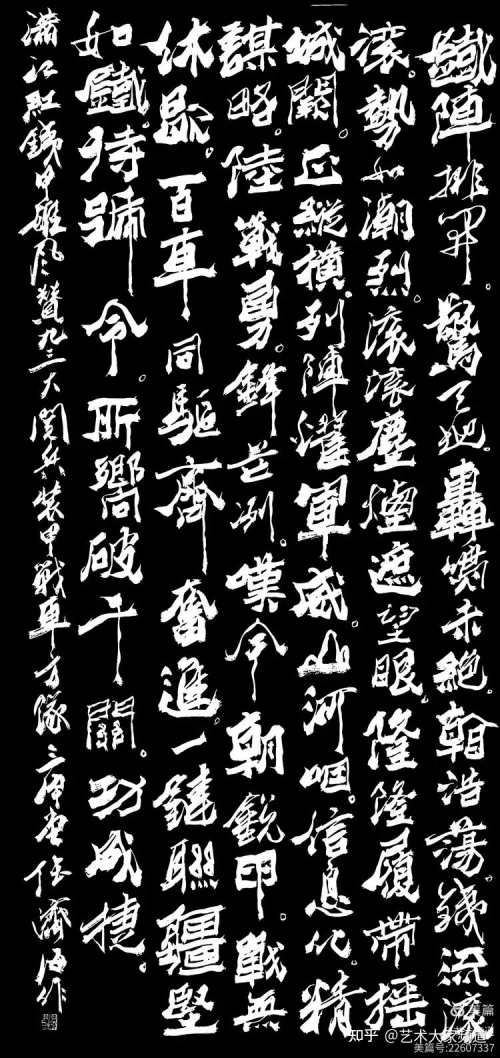 鐵陣排開。驚天地。轟鳴未絕。浩蕩。鐵流滾
滾。勢如潮烈。滾滾塵煙遮望眼。隆隆履帶搖
城闕。正縱橫。列陣灌軍威。山河咽。信息化。精
謀略。陸戰勇。鋒芒冽。嘆今朝銳甲。戰無
休歇。百車同驅齊奮進。一鏈聯疆堅
如鐵。待號令。所嚮破千關。功成捷。
滿江紅鐵甲雄風贊九三大閱兵裝甲戰車方隊 作
美篇
知乎 @艺术大家频道
美篇号:22607337